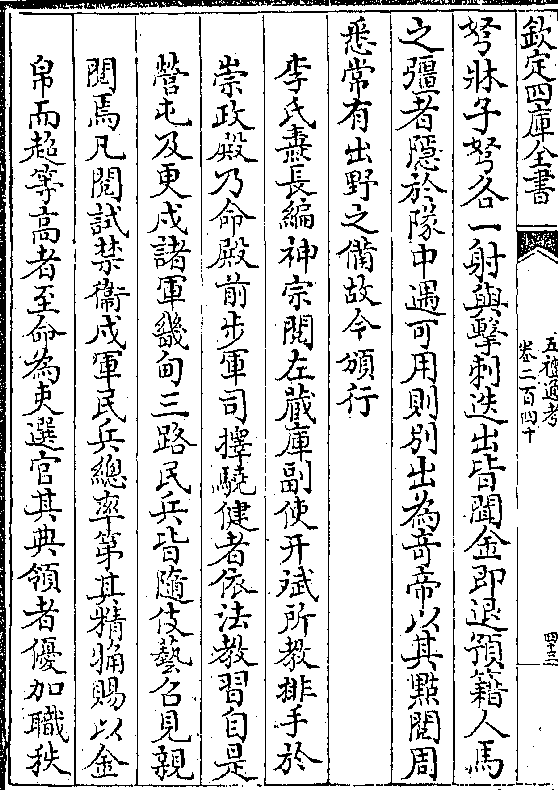 欽定四庫全書
五禮通考
卷二百四十
四十三
弩牀子弩各一射與擊刺迭出皆聞金即退預籍人馬
之彊者隱於隊中遇可用則別出為奇帝以其點閱周
悉常有出野之備故令頒行
李氏燾長編神宗閱左蔵庫副使开斌所教排手於
崇政殿乃命殿前步軍司擇驍健者依法教習自是
營屯及更戍諸軍畿甸三路民兵皆隨伎藝召見親
閱焉凡閱試禁衞戍軍民兵總率第其精觕賜以金
帛而超等高者至命為吏選官其典領者優加職秩